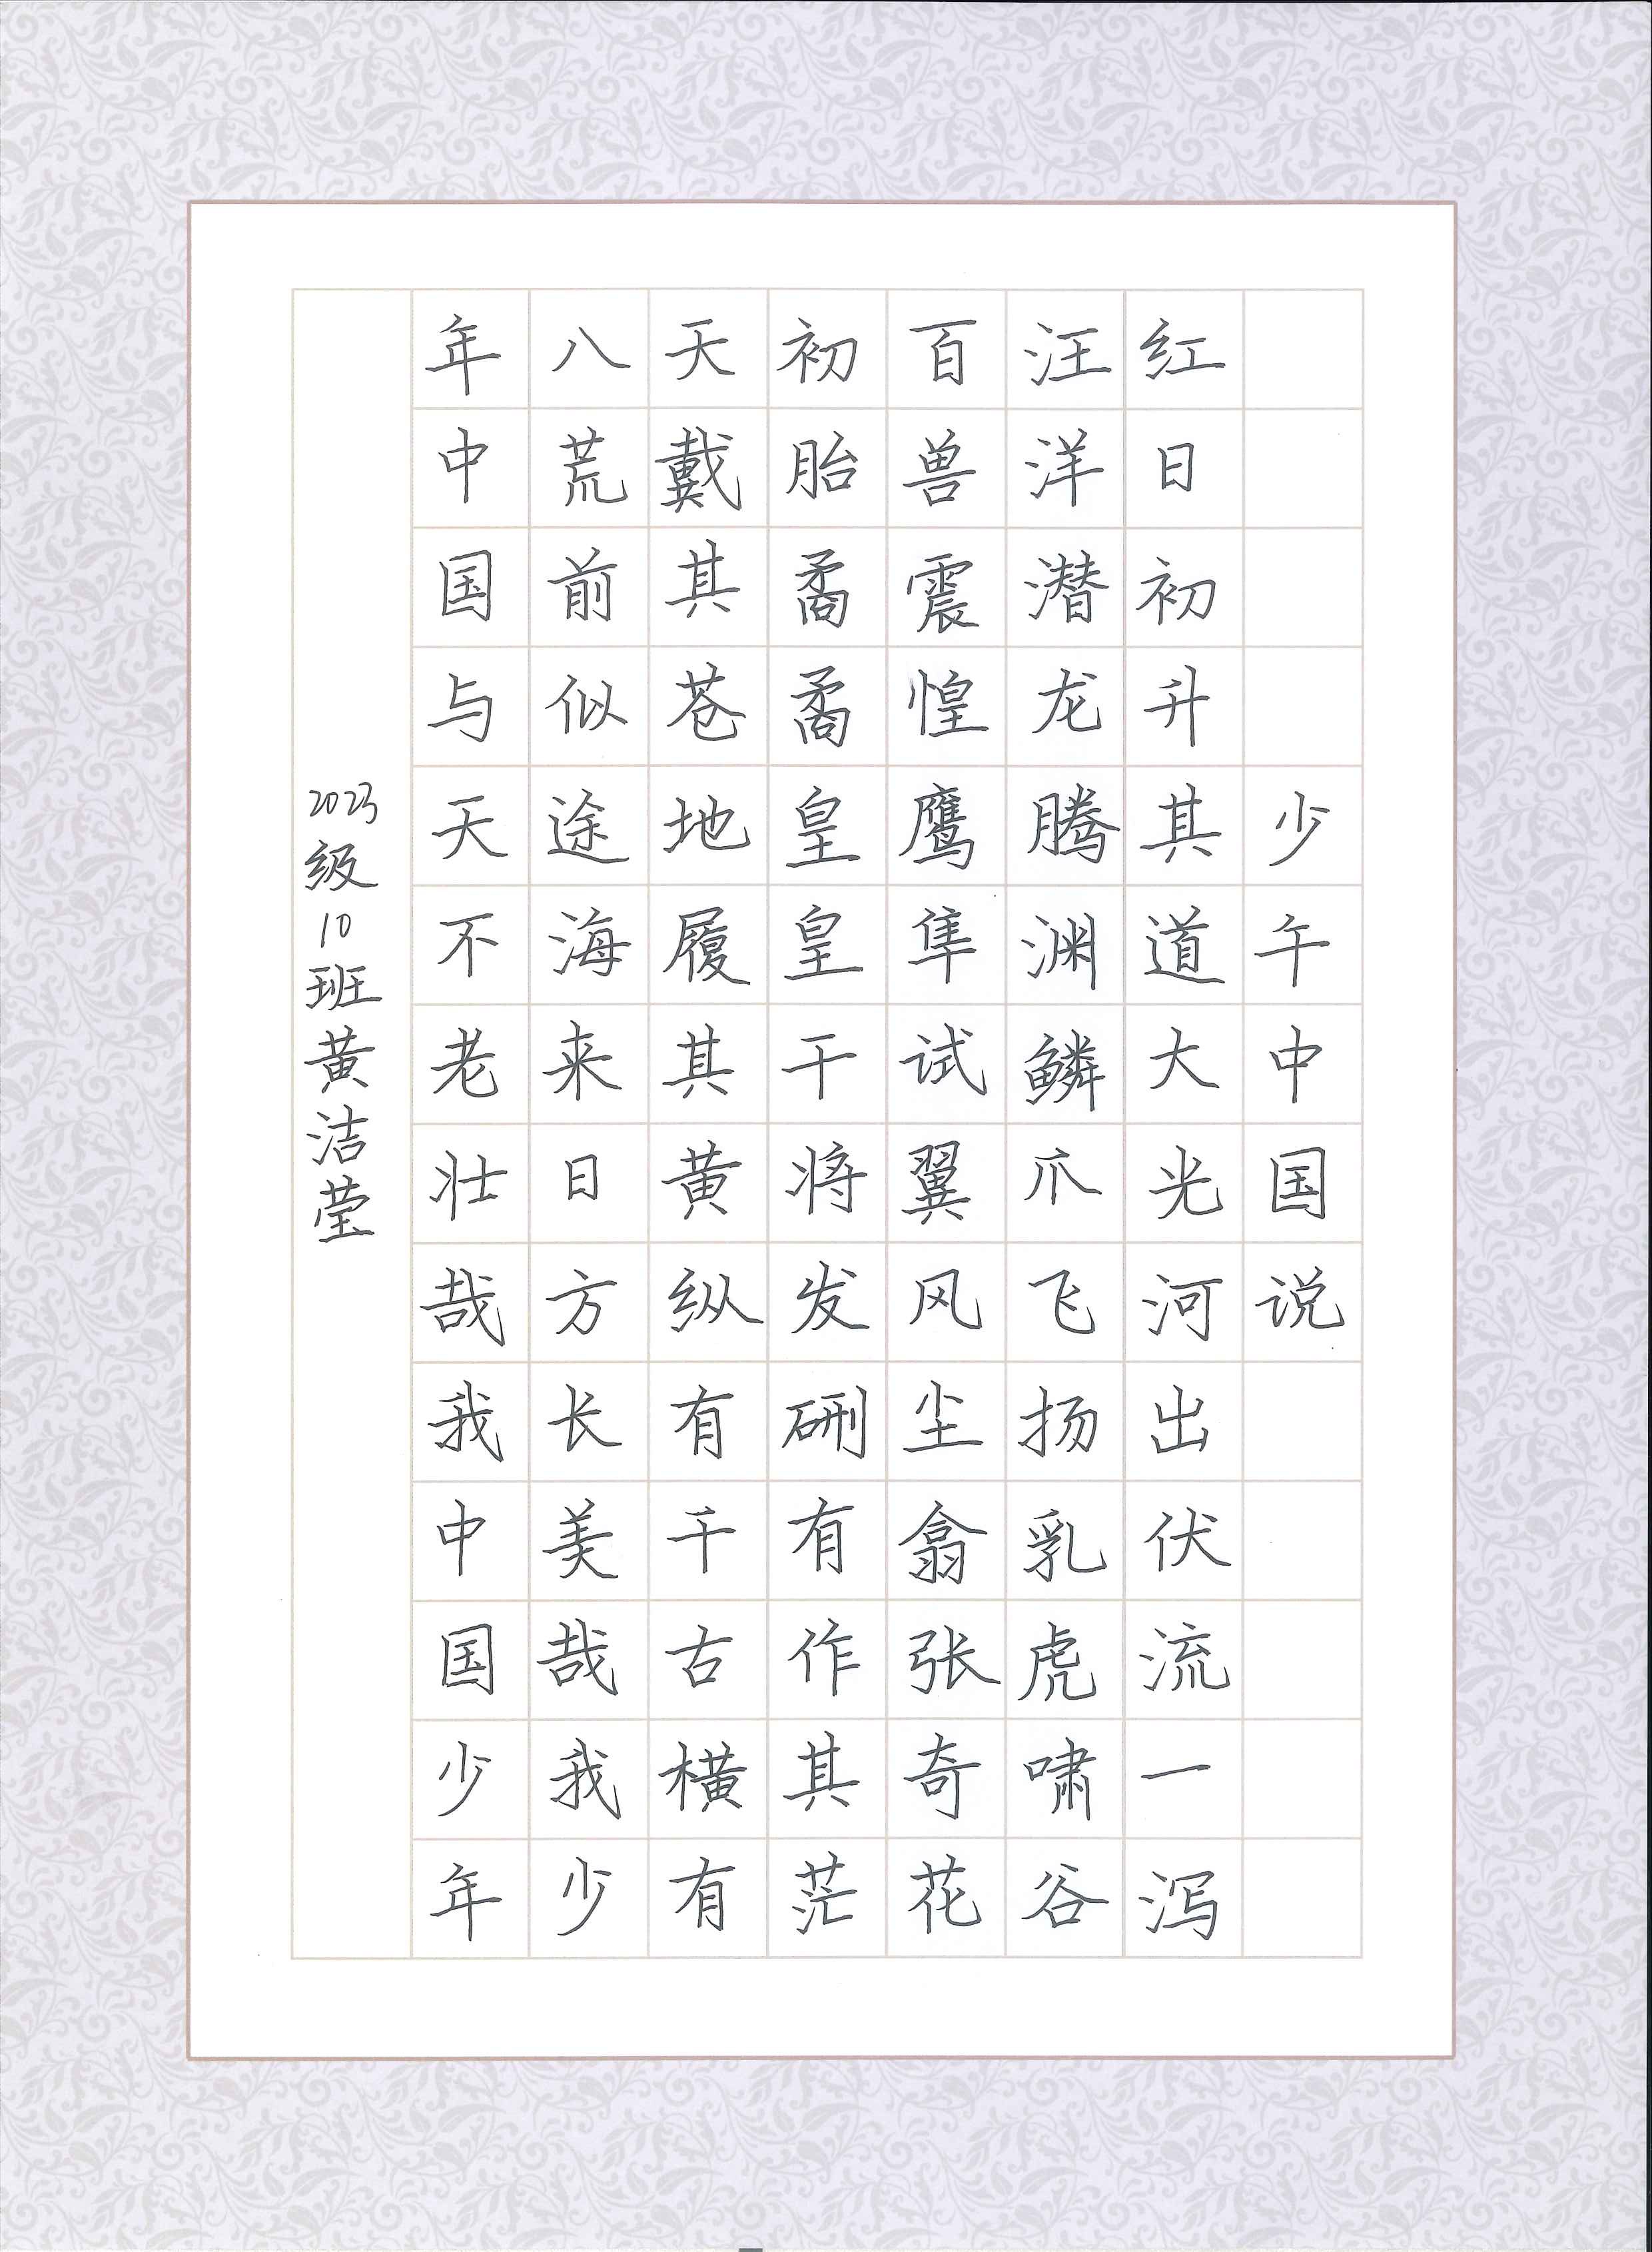 少午中国说
红日初升其道大光河出伏流一泻
汪洋潜龙腾渊鳞爪飞扬乳虎啸谷
百兽震惶鹰隼试翼风尘翕张奇花
初胎矞矞皇皇干将发硎有作其茫
天戴其苍地履其黄纵有千古横有
八荒前似途海来日方长美哉我少
年中国与天不老壮哉我中国少年
2023级10班黄洁莹